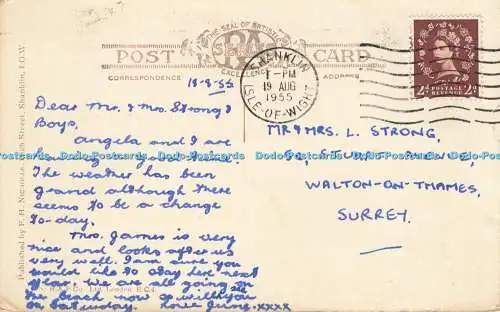 THE SEAL OF ARTISTIC
EXCELLENCE
POST CARD
CORRESPONDENCE
ADDRESS
SHANKLIN
1-PM
19 AUG
1955
ISLE-OF-WIGHT
POSTAGE
REVENUE
2d 2d
18-8-55
Dear Mr. & Mrs. Strong &
Boys,
Angela and I are
having a
The weather has been
grand although there
seems to be a change
to-day.
Mrs. James is very
nice and looks after us
very well. I am sure you
would like to stay here next
year. We are all going on
the beach now so will
you
on Saturday. Love June. xxxx
MR & MRS. L. STRONG,
WALTON-ON-THAMES,
SURREY.
Published by F. H. Street, Shanklin, I.O.W.
Ltd., London, E.C.4.
Postcards-Online.com